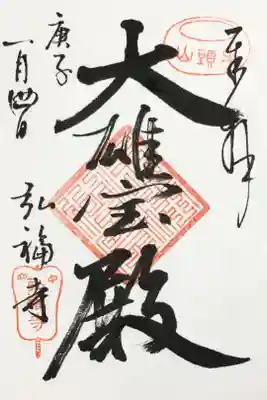 奉拝
大雄宝殿
庚子
一月四日
弘福寺